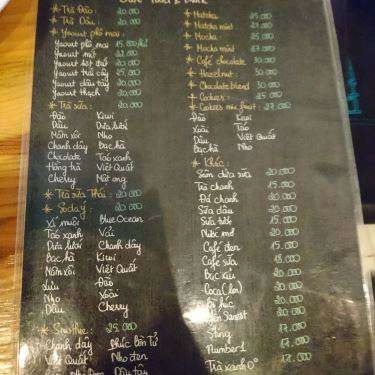 * Trà Đào: 20.000
* Trà Dâu: 20.000
* Yaourt phô mai:
Yaourt phô mai 15.000/hũ
Yaourt mít 22.000
Yaourt trái cây 25.000
Yaourt dâu tây 20.000
Yaourt thạch 20.000
* Trà sữa: 20.000
Đào Kiwi
Dâu Dưa lưới
Môn xôi Nho
Chanh dây Bạc hà
Chocolate Táo xanh
Hồng trà Việt Quất
Cherry Mật ong
* Trà sữa Thái: 20.000
* Soday: 20.000
Xí muội Blue Ocean
Táo xanh Vải
Dưa lưới Chanh dây
Bạc hà Kiwi
Việt Quất
Đào
Nho Xoài
Dâu Cherry
* Smothie: 25.000
Chanh dây Phúc bồn Tử
Việt Quất Nho đen
Dâu Tây
* Matcha 25.000
* Matcha mint 27.000
* Mocha 25.000
* Mocha mint 27.000
* Café chocolate 30.000
* Hazelnut 30.000
* Chocolate blend 30.000
* Cookies 25.000
* Cookies mix fruit 27.000
Đào Kiwi
Xoài Táo
Dâu Việt Quất
Bạc hà Nho
* Khác:
Sâm dứa sữa 20.000
Trà chanh 15.000
Đá chanh 15.000
Sữa dâu 20.000
Sữa tươi 15.000
20.000
Café đen 15.000
Café sữa 18.000
Bạc xỉu 20.000
Coca (lon) 20.000
Bò húc 20.000
20.000
Sting 17.000
Number1 17.000
Trà xanh 0° 17.000